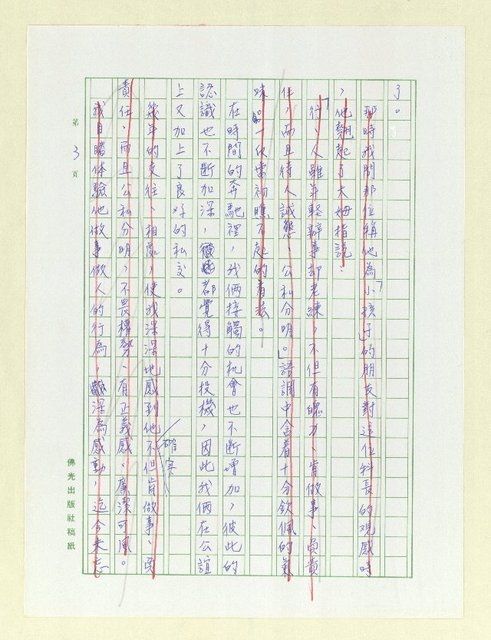 了。
那時我問那位稱他為「小孩子」的朋友對這位科長的觀感時
，他翹起了大姆指說：
「行，人雖年輕，辦事卻老練，不但有魄力、肯做事、負責
任，而且待人誠懇、公私分明。」語調中含着十分欽佩的氣
味。
在時間的奔馳裡，我倆接觸的机會也不斷增加，彼此的
認識也不斷加深，都覺得十分投機，因此我倆在公誼
上又加上了良好的私交。
幾年的交往、相處，使我深深地感到他不但肯做事、負
確實
責任，而且公私分明、不畏權勢、有正義感、廉潔可風。
我目睹体驗他做事做人的行為，深為感動，迄今未忘
第3頁
佛光出版社稿紙